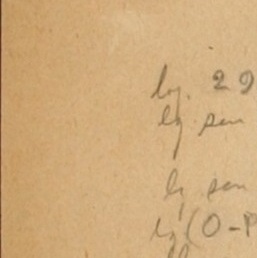 lg. 29
lg sen
lg sen
lg (O-P